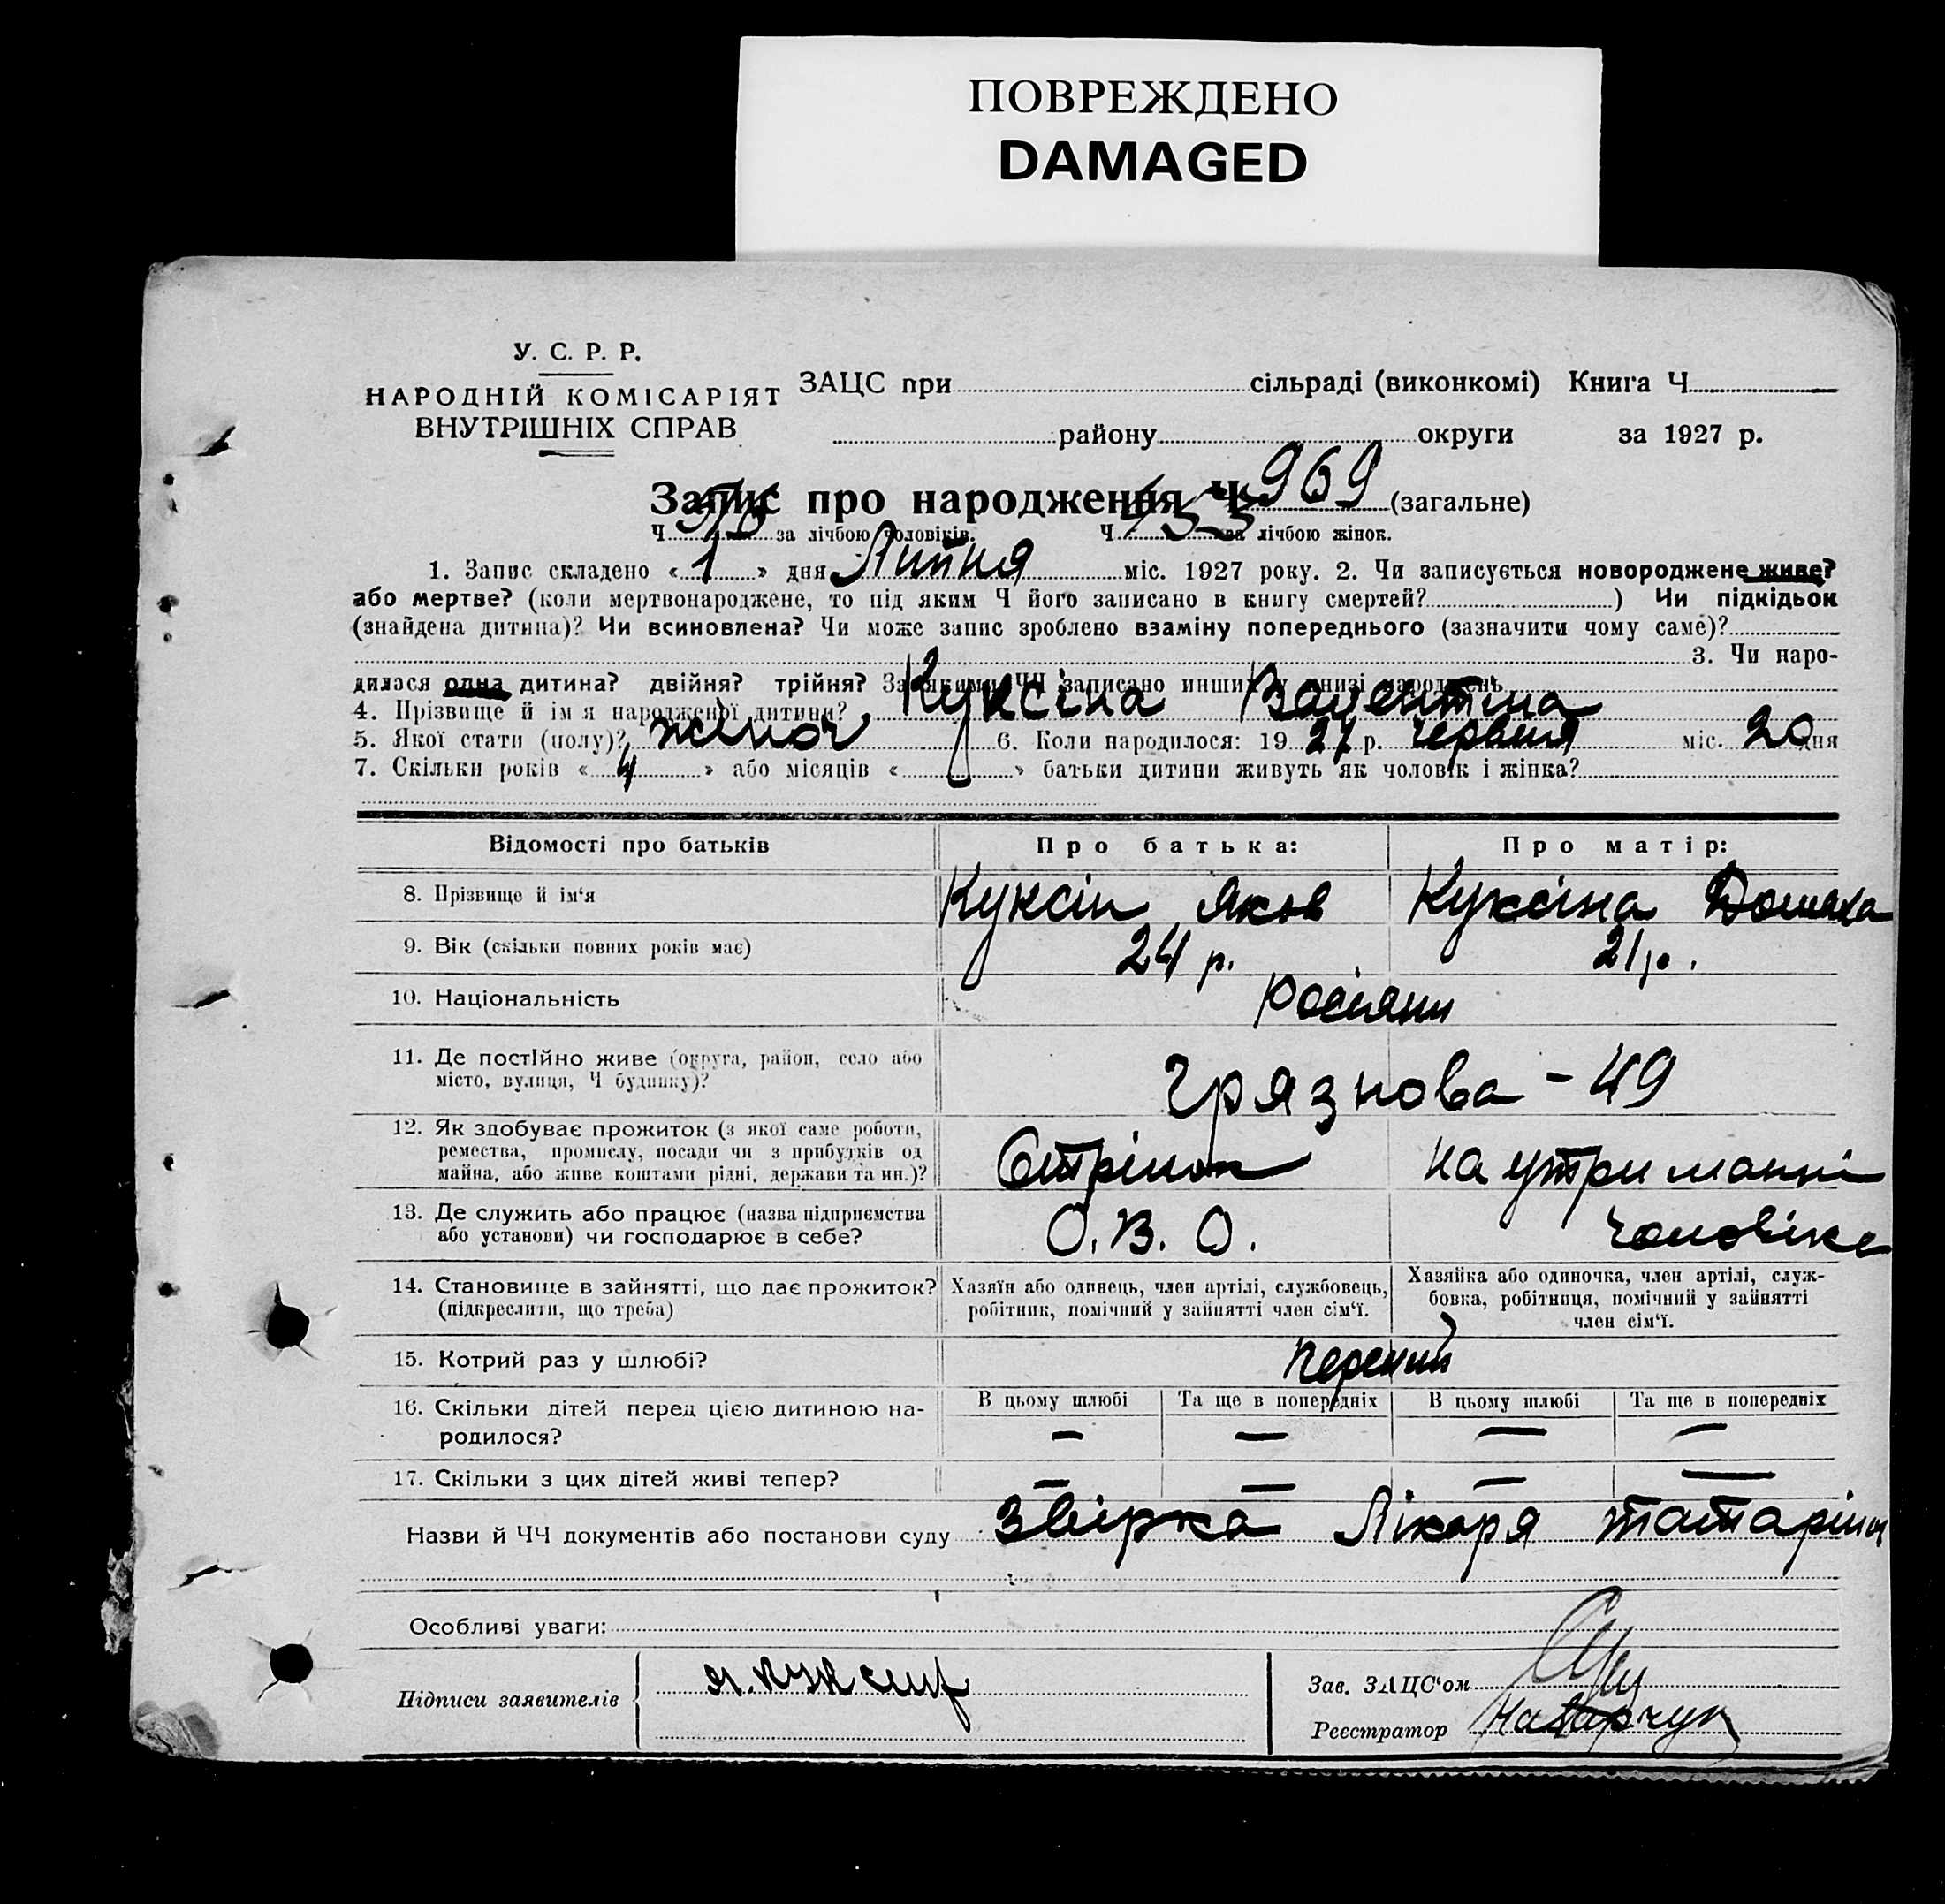 ПОВРЕЖДЕНО
DAMAGED
У. С. Р. Р.
НАРОДНІЙ КОМІСАРІЯТ
ВНУТРІШНІХ СПРАВ
ЗАЦС при сільраді (виконкомі) Книга Ч
району округи за 1927 р.
Запис про народження Ч 969 (загальне)
Ч 516 за лічбою чоловіків. Ч 453 за лічбою жінок.
1. Запис складено « 1 » дня Липня міс. 1927 року. 2. Чи записується новороджене живе?
або мертве? (коли мертвонароджене, то під яким Ч його записано в книгу смертей? ) Чи підкідьок
(знайдена дитина)? Чи всиновлена? Чи може запис зроблено взаміну попереднього (зазначити чому саме)?
3. Чи наро-
дилася одна дитина? двійня? трійня? За якими ЧЧ записано инших у книзі народжень
4. Прізвище й ім'я народженої дитини? Куксіна Валентіна
5. Якої стати (полу)? жіноч 6. Коли народилося: 19 27 р. червня міс. 20 дня
7. Скільки років « 4 » або місяців « » батьки дитини живуть як чоловік і жінка?
Відомості про батьків Про батька: Про матір:
8. Прізвище й ім'я Куксін Яков Куксіна
9. Вік (скільки повних років має) 24 р. 21 р.
10. Національність Росіяни
11. Де постійно живе (округа, район, село або
місто, вулиця, Ч будинку)? Грязнова - 49
12. Як здобуває прожиток (з якої саме роботи,
ремества, промислу, посади чи з прибутків од
майна, або живе коштами рідні, держави та ин.)? на утриманні
13. Де служить або працює (назва підприємства
або установи) чи господарює в себе? О. В. О. чоловіка
14. Становище в зайнятті, що дає прожиток?
(підкреслити, що треба)
Хазяїн або одинець, член артілі, службовець,
робітник, помічний у зайнятті член сім'ї.
Хазяйка або одиночка, член артілі, служ-
бовка, робітниця, помічний у зайнятті
член сім'ї.
15. Котрий раз у шлюбі? перший
16. Скільки дітей перед цією дитиною на-
родилося?
В цьому шлюбі Та ще в попередніх В цьому шлюбі Та ще в попередніх
— — — —
17. Скільки з цих дітей живі тепер? — — — —
Назви й ЧЧ документів або постанови суду Звірка Лікаря
Особливі уваги:
Підписи заявителів Я. Куксин
Зав. ЗАЦС'ом
Реєстратор